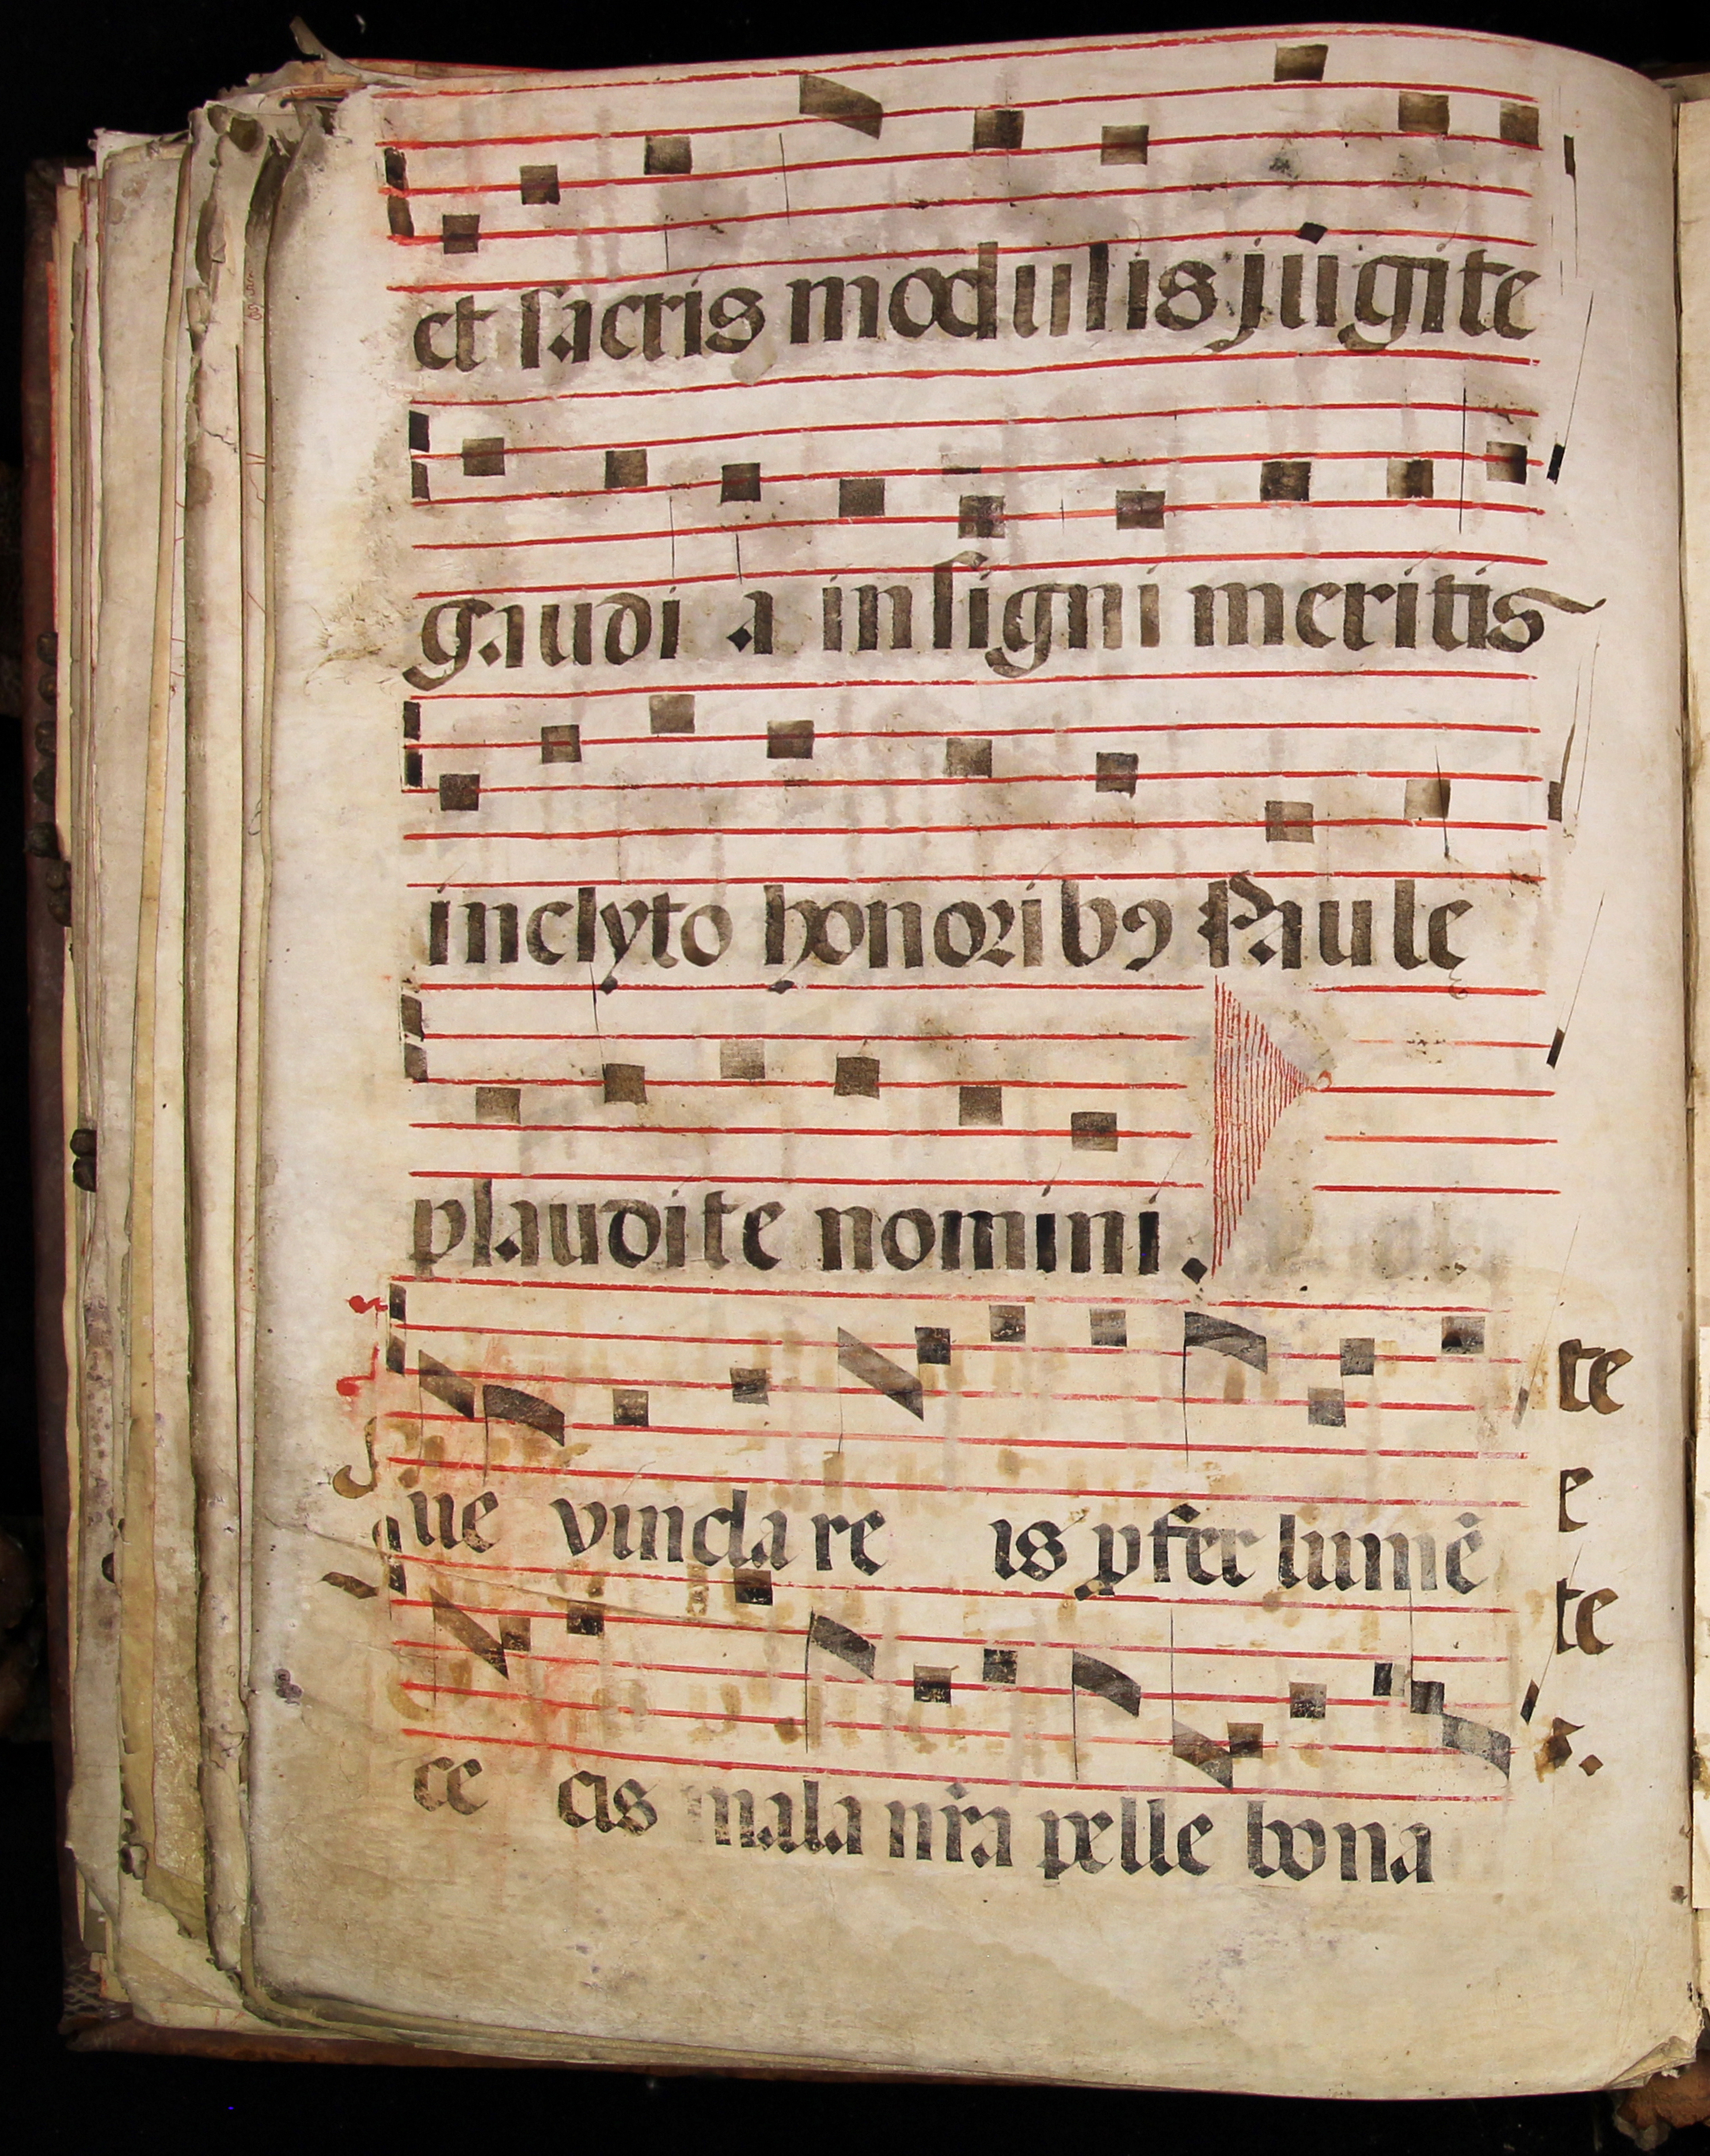 et sacris modulis jugite
gaudi a insigni meritis
inclyto honoribꝯ Paulę
plaudite nomini.
ue vincla re is ꝑfer lumē
ce cis mala nr̄a pelle bona
te
e
te
s.